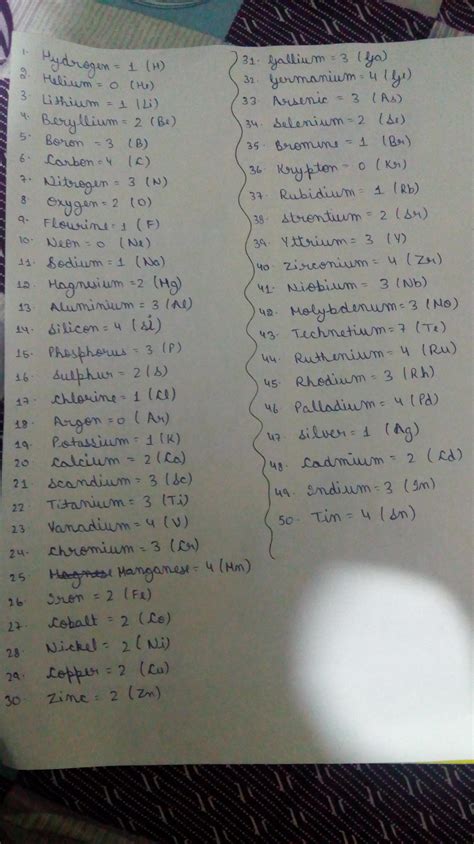 1. Hydrogen = 1 (H)
2. Helium = 0 (He)
3. Lithium = 1 (Li)
4. Beryllium = 2 (Be)
5. Boron = 3 (B)
6. Carbon = 4 (C)
7. Nitrogen = 3 (N)
8. Oxygen = 2 (O)
9. Flourine = 1 (F)
10. Neon = 0 (Ne)
11. Sodium = 1 (Na)
12. Magnesium = 2 (Mg)
13. Aluminium = 3 (Al)
14. Silicon = 4 (Si)
15. Phosphorus = 3 (P)
16. Sulphur = 2 (S)
17. Chlorine = 1 (Cl)
18. Argon = 0 (Ar)
19. Potassium = 1 (K)
20. Calcium = 2 (Ca)
21. Scandium = 3 (Sc)
22. Titanium = 3 (Ti)
23. Vanadium = 4 (V)
24. Chromium = 3 (Cr)
25. Manganese = 4 (Mn)
26. Iron = 2 (Fe)
27. Cobalt = 2 (Co)
28. Nickel = 2 (Ni)
29. Copper = 2 (Cu)
30. Zinc = 2 (Zn)
31. Gallium = 3 (Ga)
32. Germanium = 4 (Ge)
33. Arsenic = 3 (As)
34. Selenium = 2 (Se)
35. Bromine = 1 (Br)
36. Krypton = 0 (Kr)
37. Rubidium = 1 (Rb)
38. Strontium = 2 (Sr)
39. Yttrium = 3 (Y)
40. Zirconium = 4 (Zr)
41. Niobium = 3 (Nb)
42. Molybdenum = 3 (Mo)
43. Technetium = 7 (Te)
44. Ruthenium = 4 (Ru)
45. Rhodium = 3 (Rh)
46. Palladium = 4 (Pd)
47. Silver = 1 (Ag)
48. Cadmium = 2 (Cd)
49. Indium = 3 (In)
50. Tin = 4 (Sn)